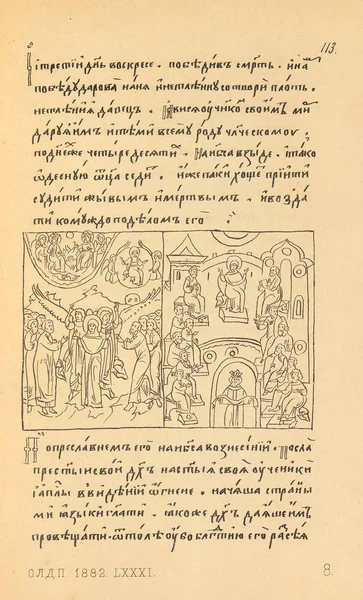 113.
и трети д҃нь воскресе · побѣдивъ смр҃ть · и на
побѣду дарова на нѧ и нетлѣнну сотвори плоть ·
нетлѣнїѧ давецъ · ꙗвисѧ оученико своимъ ми
дарꙋѧ имъ и тѣми всемꙋ родꙋ чл҃ческомоу ·
по дне же четыредесѧти · на нб҃са взыде · и тако
ѿдеснꙋю ѿц҃а седи · иже паки хоще прїити
сꙋдити живымъ и мертвымъ · и возда
ти комꙋждо по дѣломъ его
По преславнемъ его на нб҃са вознесенїй · посла
прест҃ыи свой д҃хъ на ст҃ыѧ своѧ оученики
и ап҃лы в видѣнїй ѿгнене · начаша страны
ми ꙗзыки гл҃ати · ꙗкоже д҃хъ даѧше имъ
провѣщати · ѿтолѣ оубо бл҃гтїю его разсеѧ
О.Л.Д.П. 1882. LXXXI.
8.